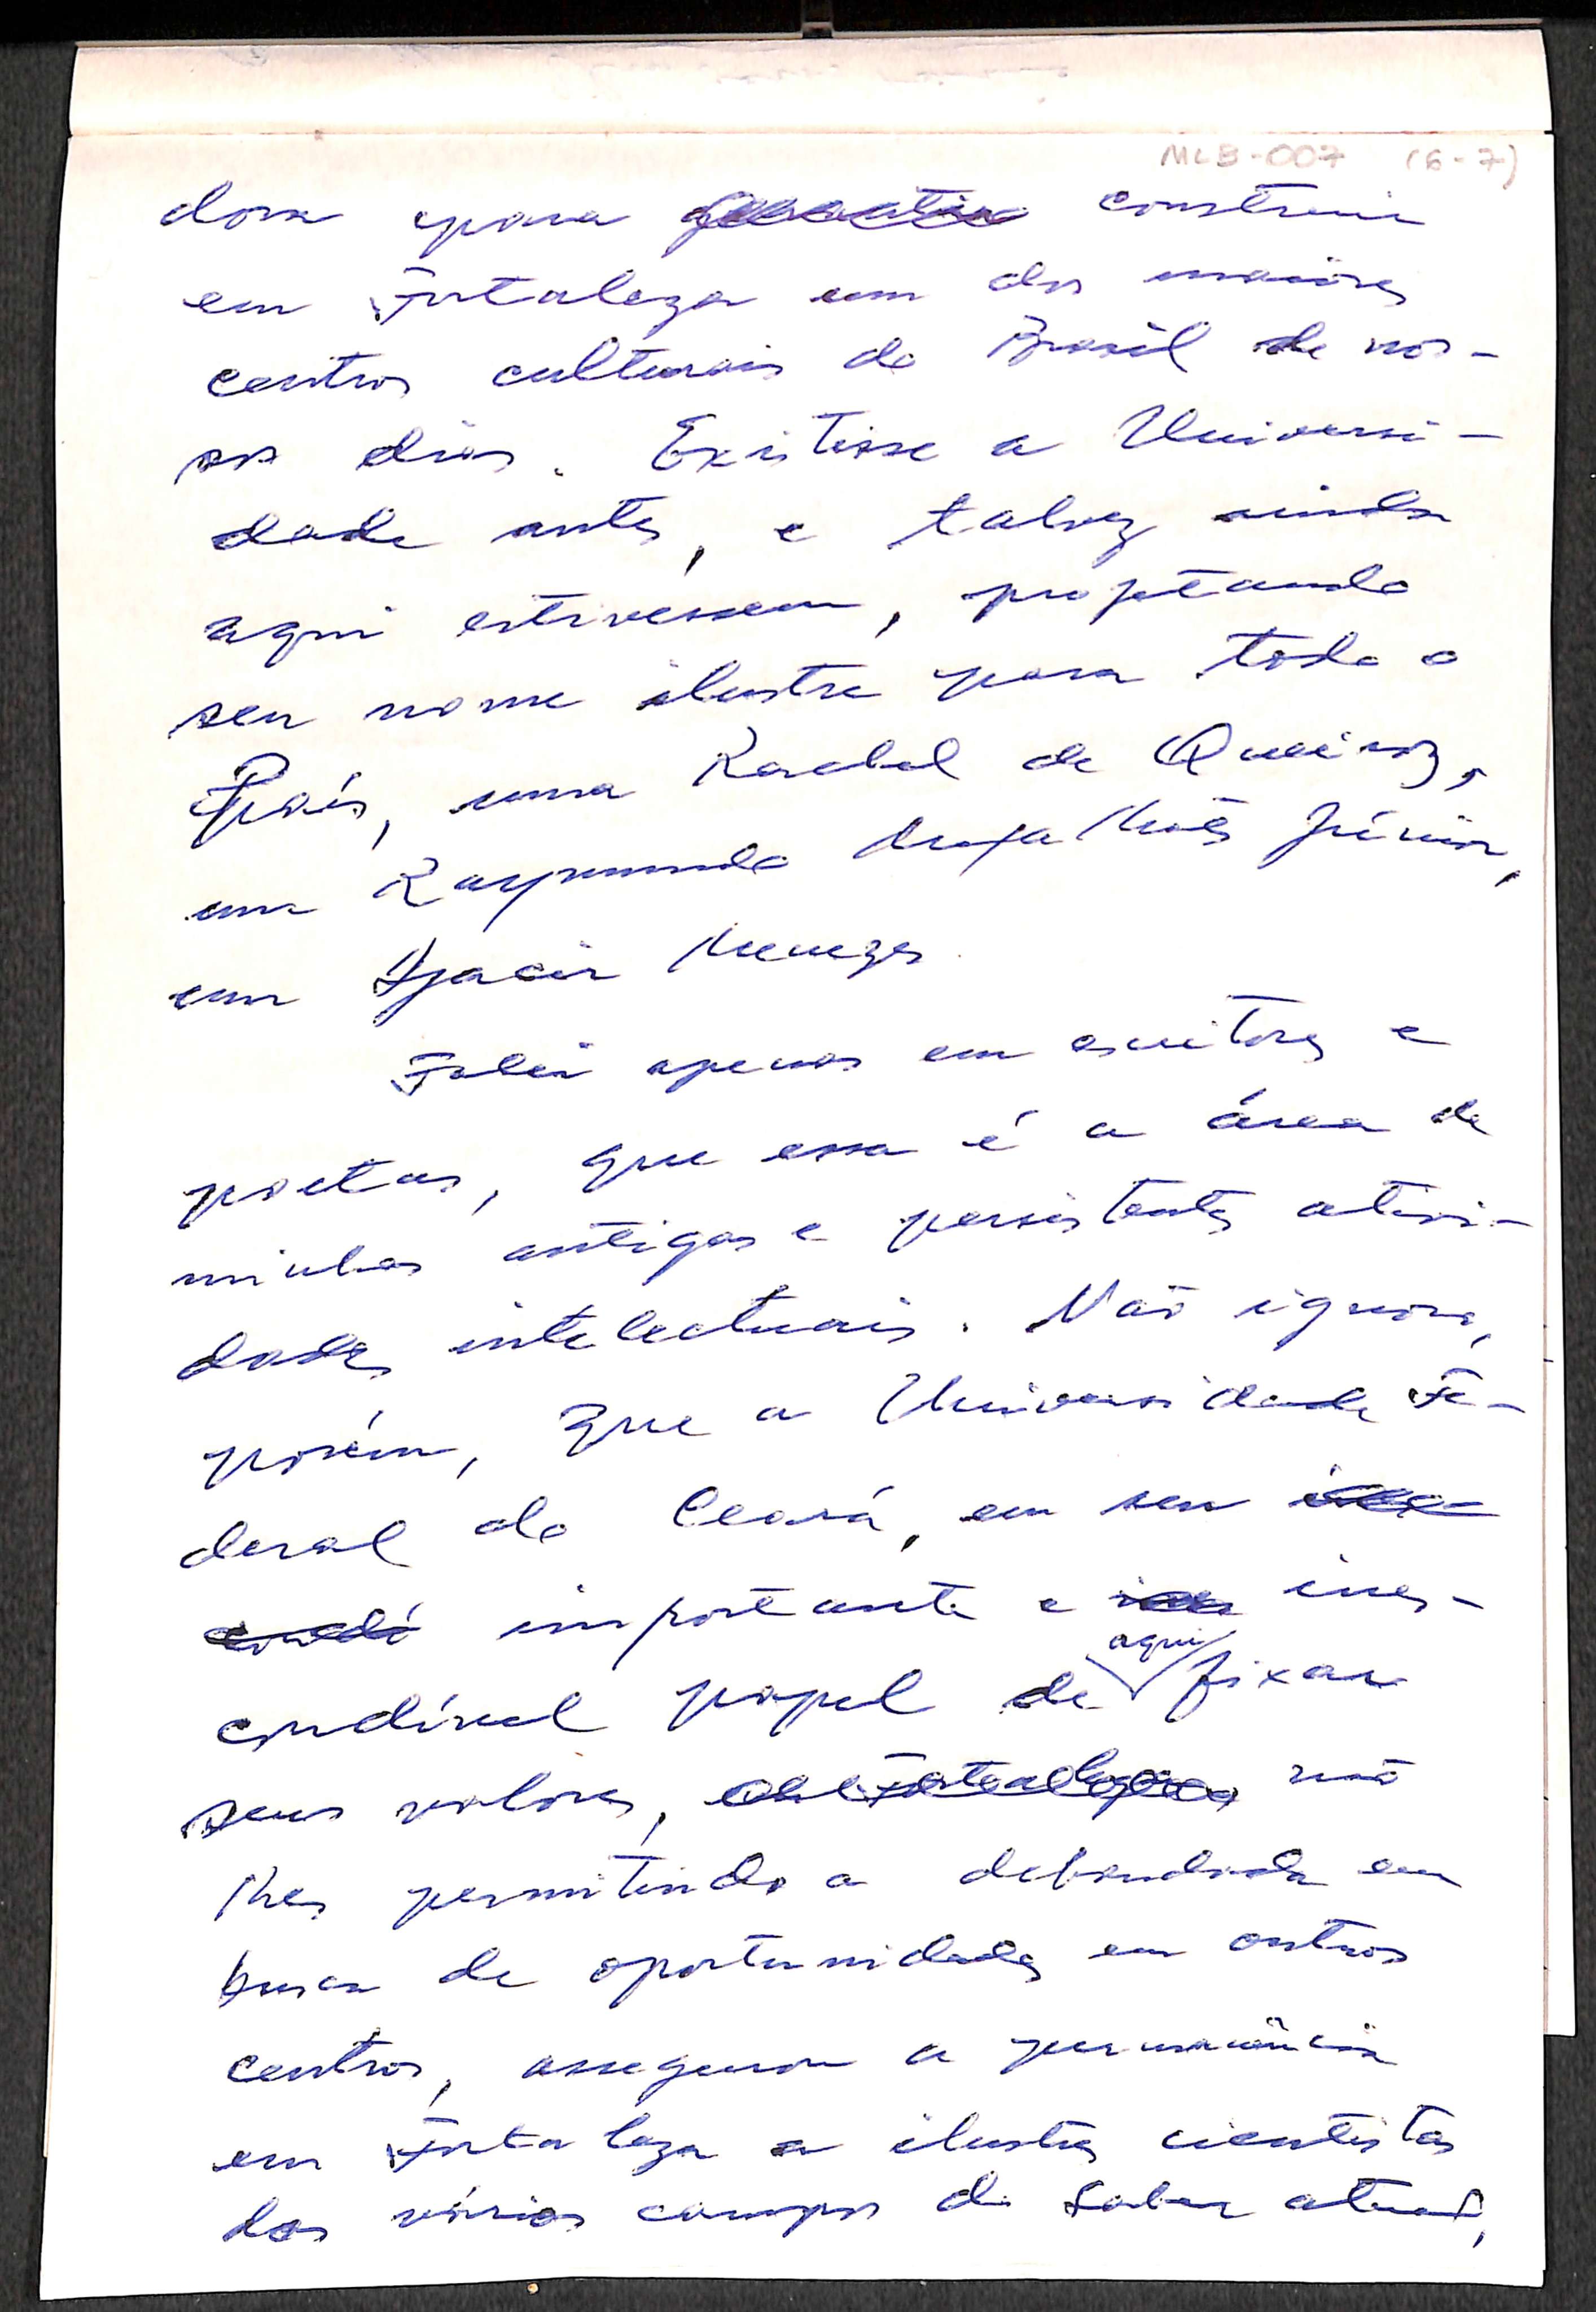 MLB-007 (6-7)
dora para construir
em Fortaleza um dos maiores
centros culturais do Brasil de nos-
sos dias. Existisse a Universi-
dade antes, e talvez ainda
aqui estivessem, projetando
seu nome ilustre para todo o
País, uma Rachel de Queiroz,
um Raymundo Magalhães Júnior,
um Djacir Menezes.
Falei apenas em escritores e
poetas, que essa é a área de
minhas antigas e persistentes ativi-
dades intelectuais. Não ignoro,
porém, que a Universidade Fe-
deral do Ceará, em seu
importante e ines-
condível papel de aqui fixar
seus valores, não
lhes permitindo a debandada em
busca de oportunidades em outros
centros, assegurou a permanência
em Fortaleza a ilustres cientistas
dos vários campos do saber atual,